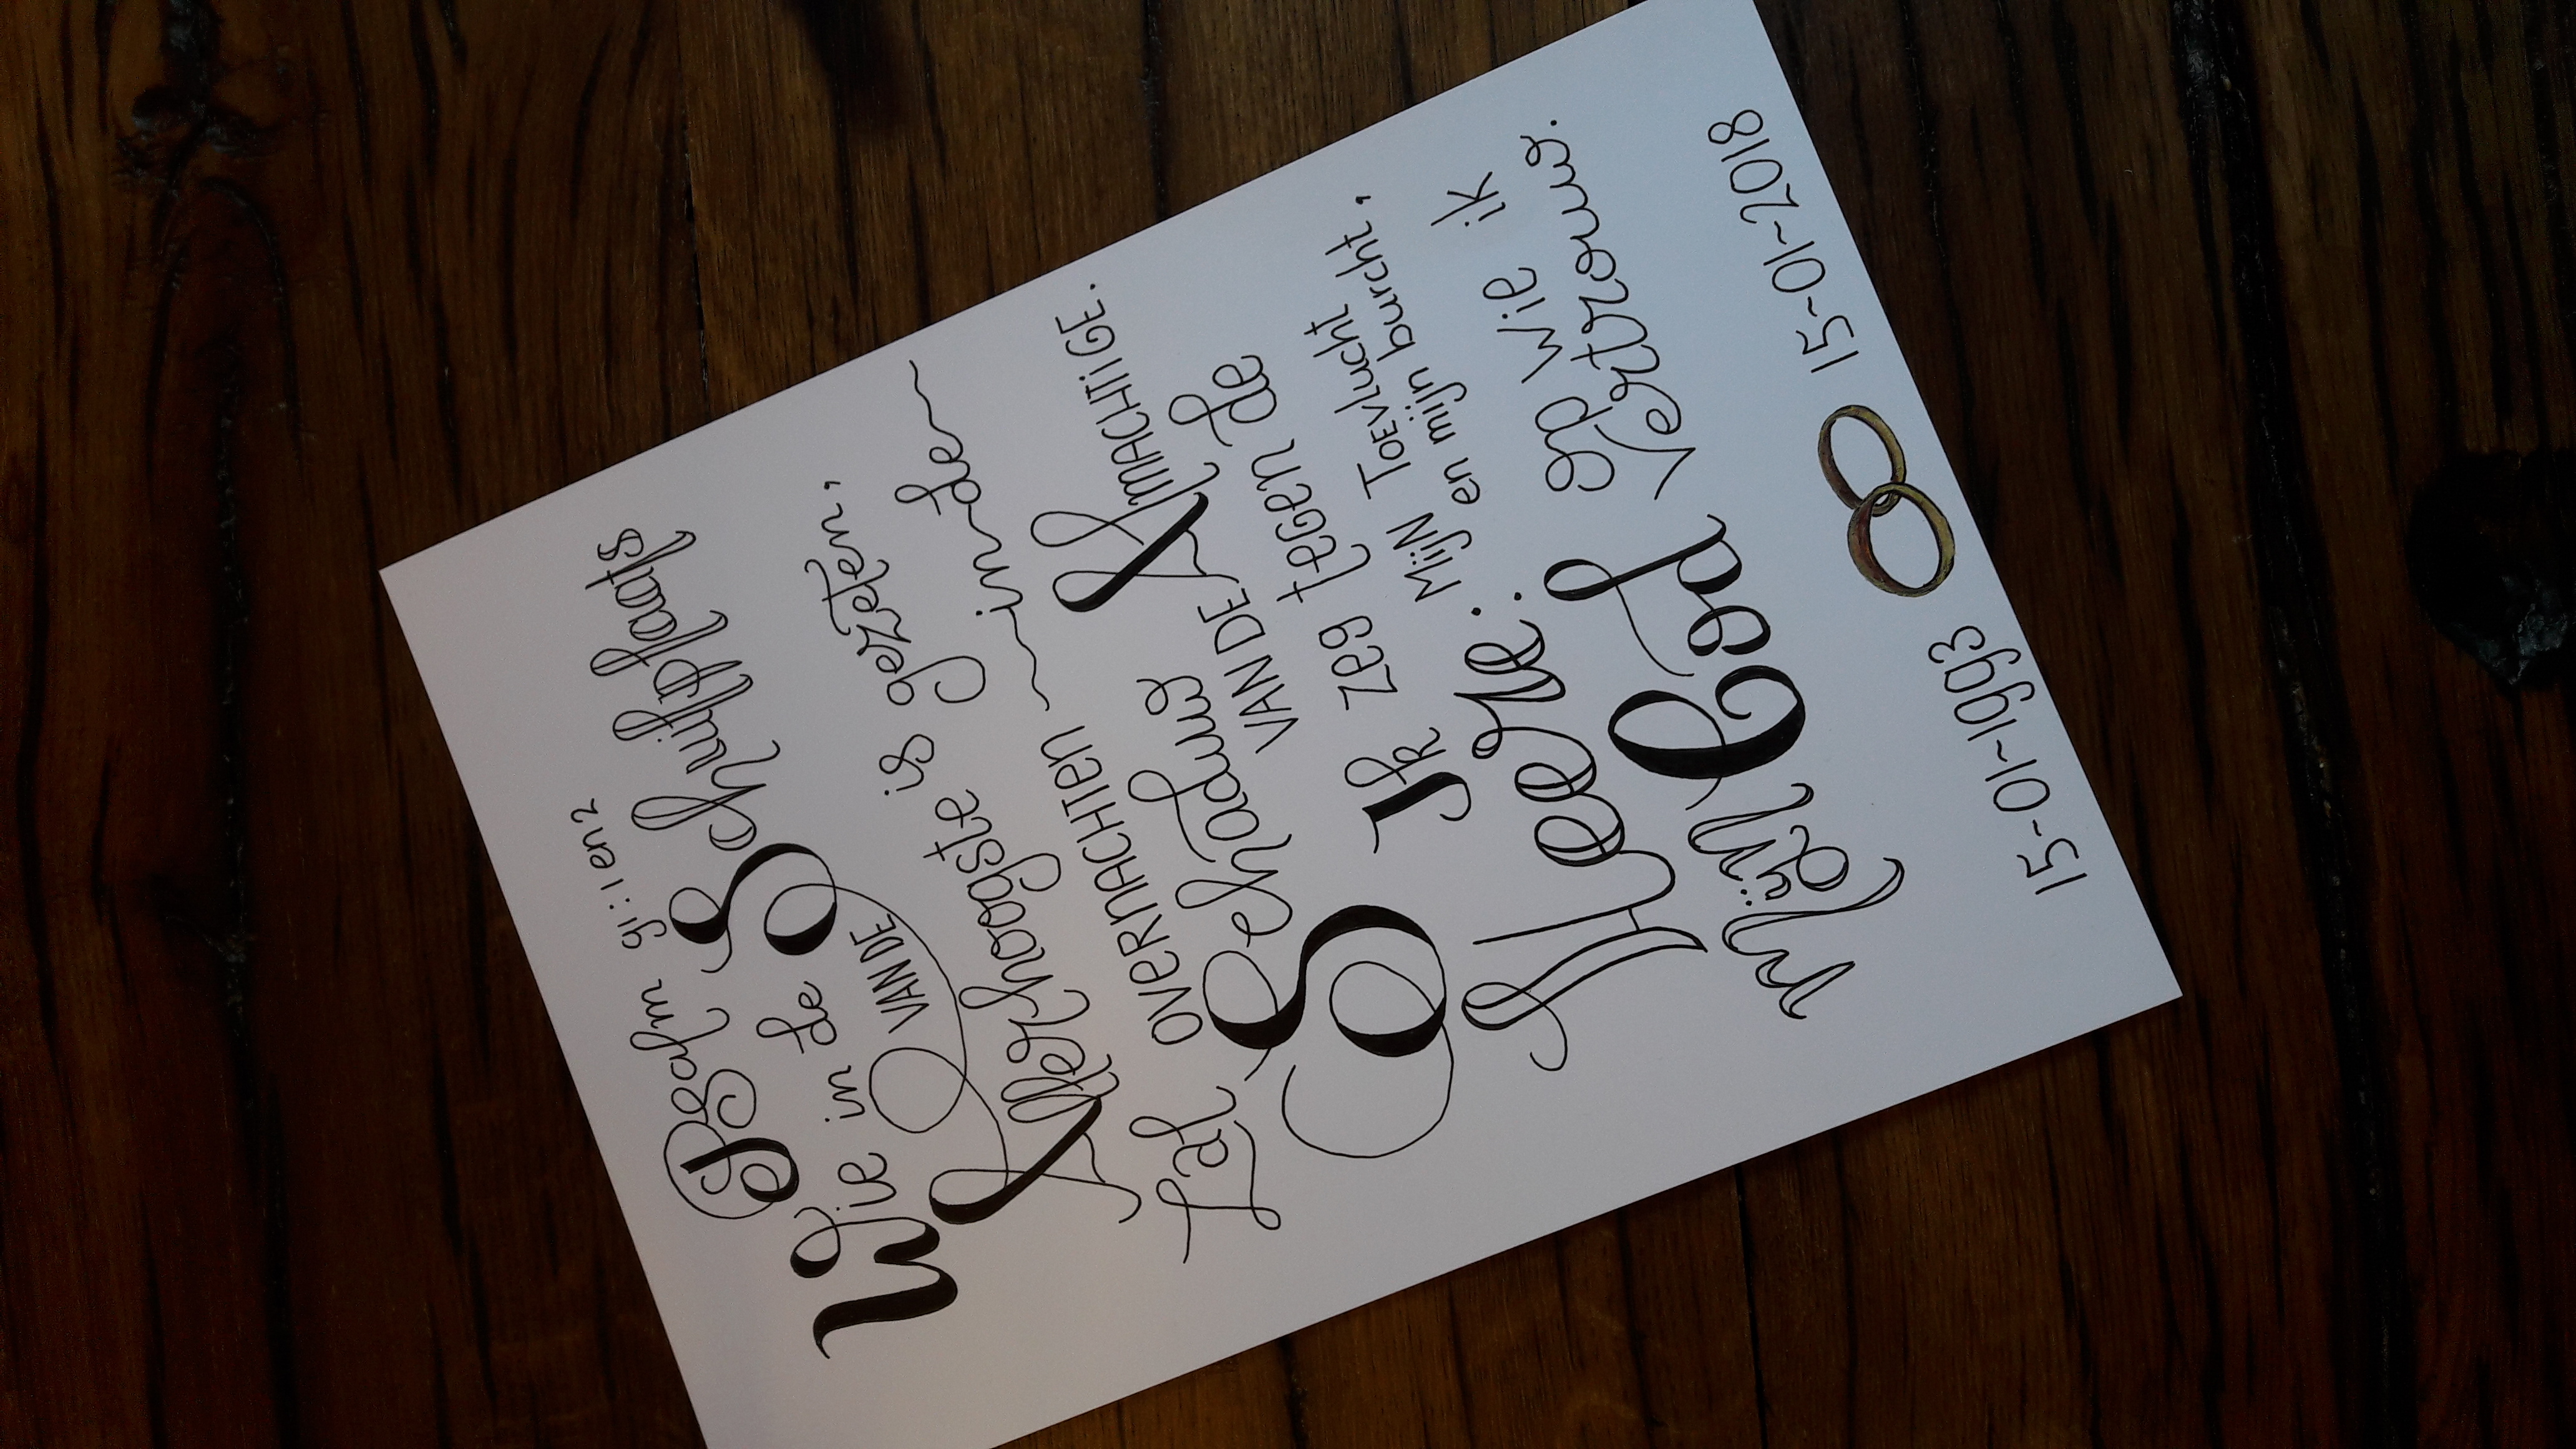 Psalm 91:1 en 2
Wie in de Schuilplaats
VAN DE
Allerhoogste is gezeten,
Zal OVERNACHTEN in de
Schaduw VAN DE AlMACHTiGE.
Ik zeg tegen de
Heere: MijN TOEVlucht
en mijn burcht,
MijN God op wie ik
vertrouw.
15-01-1993 15-01-2018